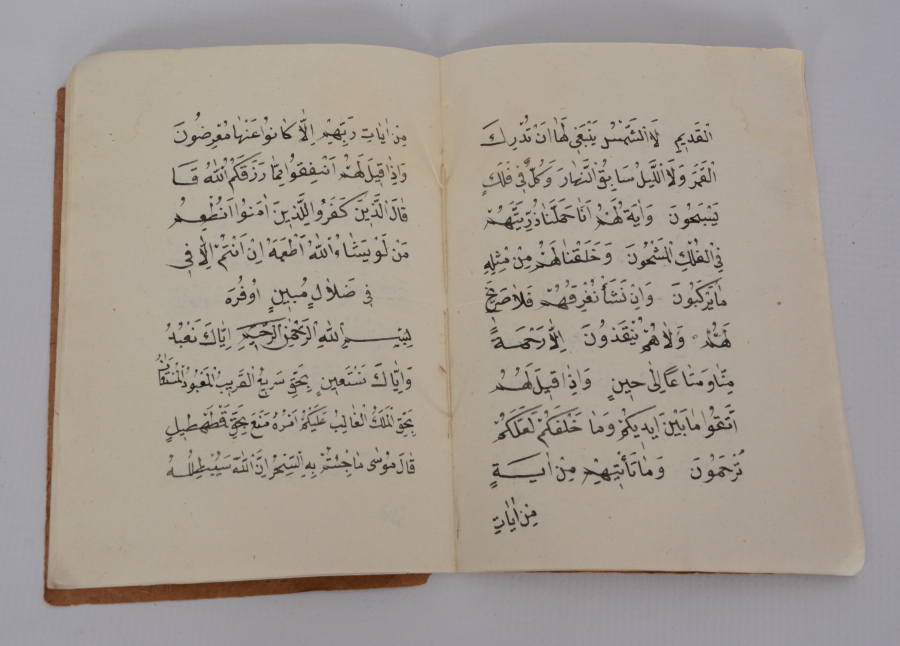 الْقَدِيمِ لَا الشَّمْسُ يَنْبَغِي لَهَا اَنْ تُدْرِكَ
الْقَمَرَ وَلَا اللَّيْلُ سَابِقُ النَّهَارِ وَكُلٌّ فِي فَلَكٍ
يَسْبَحُونَ وَاٰيَةٌ لَهُمْ اَنَّا حَمَلْنَا ذُرِّيَّتَهُمْ
فِي الْفُلْكِ الْمَشْحُونِ وَخَلَقْنَا لَهُمْ مِنْ مِثْلِهِ
مَا يَرْكَبُونَ وَاِنْ نَشَأْ نُغْرِقْهُمْ فَلَا صَرِيخَ
لَهُمْ وَلَا هُمْ يُنْقَذُونَ اِلَّا رَحْمَةً
مِنَّا وَمَتَاعًا اِلَى حِينٍ وَاِذَا قِيلَ لَهُمُ
اتَّقُوا مَا بَيْنَ اَيْدِيكُمْ وَمَا خَلْفَكُمْ لَعَلَّكُمْ
تُرْحَمُونَ وَمَا تَأْتِيهِمْ مِنْ اٰيَةٍ
مِنْ اٰيَاتِ
مِنْ اٰيَاتِ رَبِّهِمْ اِلَّا كَانُوا عَنْهَا مُعْرِضُونَ
وَاِذَا قِيلَ لَهُمْ اَنْفِقُوا مِمَّا رَزَقَكُمُ اللّٰهُ قَا
قَالَ الَّذِينَ كَفَرُوا لِلَّذِينَ اٰمَنُوا اَنُطْعِمُ
مَنْ لَوْ يَشَاءُ اللّٰهُ اَطْعَمَهُ اِنْ اَنْتُمْ اِلَّا فِي
فِي ضَلَالٍ مُبِينٍ اوفره
بِسْمِ اللّٰهِ الرَّحْمٰنِ الرَّحِيمِ اِيَّاكَ نَعْبُدُ
وَاِيَّاكَ نَسْتَعِينُ بِحَقِّ سَرِيعُ الْقَرِيبُ الْمَعْبُودُ
بِحَقِّ الْمَلَكُ الْغَالِبُ عَلَيْكُمْ اَمْرُهُ بِحَقِّ
قَالَ مُوسَى مَا جِئْتُمْ بِهِ السِّحْرُ اِنَّ اللّٰهَ سَيُبْطِلُهُ